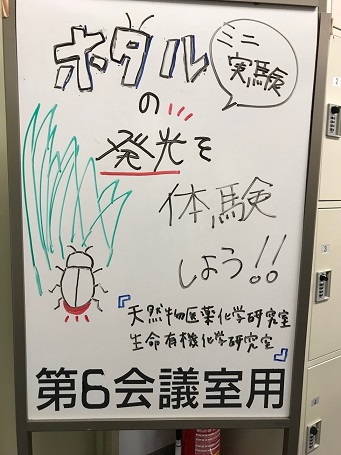 ホタル
ミニ
実験
の
発光を
体験
しよう!!
『天然物医薬化学研究室
生命有機化学研究室』
第6会議室用